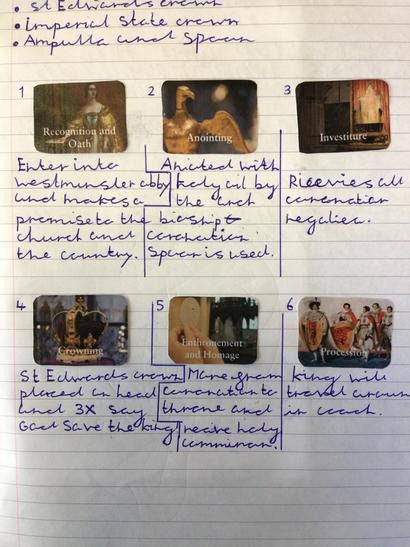 • St Edwards crown
• Imperial State crown
• Ampulla and Spoon
1
Recognition and
Oath
Enter into
westminster abby
and makes a
promise to the
church and
the country.
2
Anointing
Anioted with
holy oil by
the arch
biship
coronation
Spoon is used.
3
Investiture
Ricevies all
coronation
regalier.
4
Crowning
St Edwards crown
placed on head
and 3X say
God Save the king
5
Enthronement
and Homage
Move from
coronation to
throne and
recive holy
comminon.
6
Procession
king will
travel aroun
in coach.